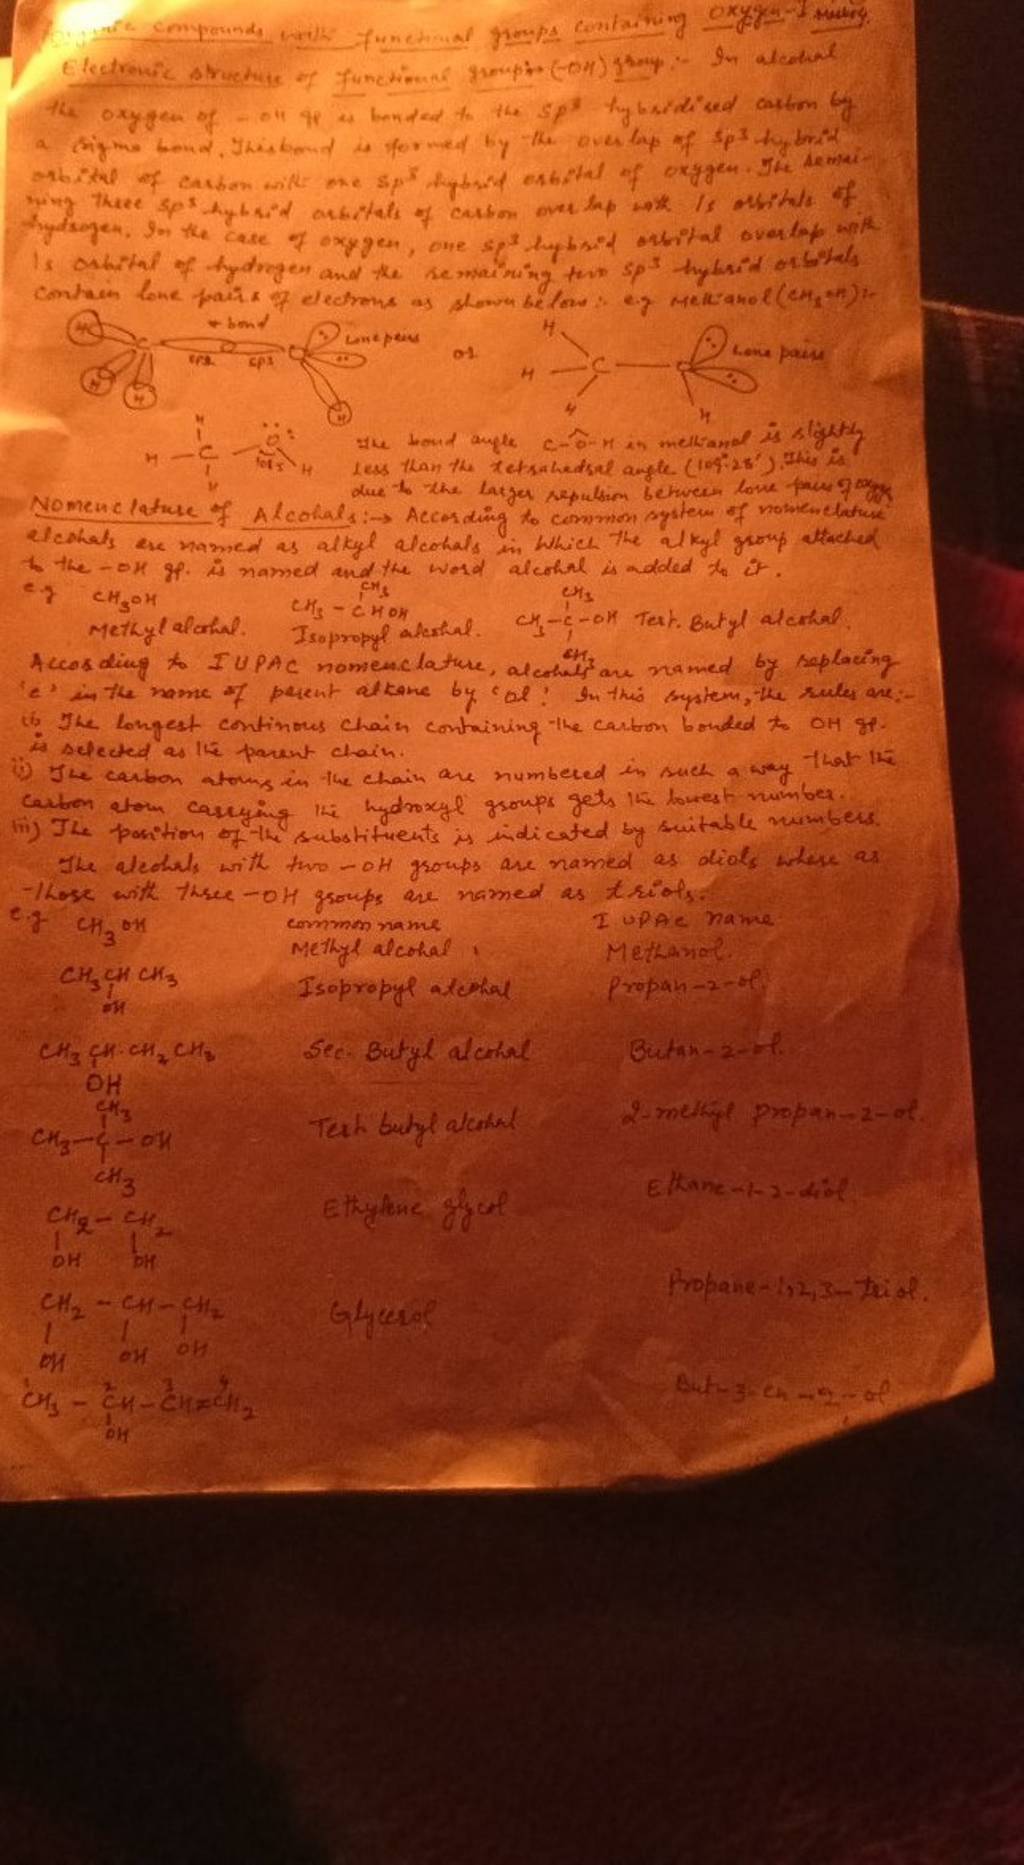 compounds with functional groups containing oxygen-I
Electronic structure of functional group (-OH) group:- In alcohol
the oxygen of -OH gp is bonded to the sp³ hybridised carbon by
a sigma bond. This bond is formed by the overlap of sp³ hybrid
orbital of carbon with one sp³ hybrid orbital of oxygen. The remai-
ning three sp³ hybrid orbitals of carbon overlap with 1s orbitals of
hydrogen. In the case of oxygen, one sp³ hybrid orbital overlap with
1s orbital of hydrogen and the remaining two sp³ hybrid orbitals
contain lone pairs of electrons as shown below:- e.g Methanol (CH₃OH):-
H C bond sp3 sp3 Lone pairs H H H or H H C H H Lone pairs
H H C H O H
The bond angle C-O-H in methanol is slightly
less than the tetrahedral angle (109°-28'). This is
due to the larger repulsion between lone pairs of oxyge
Nomenclature of Alcohols:→ According to common system of nomenclature
alcohols are named as alkyl alcohols in which the alkyl group attached
to the -OH gp. is named and the word alcohol is added to it.
e.g CH₃OH CH₃-CHOH CH₃ CH₃-C-OH CH₃ CH₃ Tert. Butyl alcohol.
Methyl alcohol. Isopropyl alcohol.
According to IUPAC nomenclature, alcohols are named by replacing
'e' in the name of parent alkane by 'ol'. In this system, the rules are:-
i) The longest continous chain containing the carbon bonded to OH gp.
is selected as the parent chain.
ii) The carbon atoms in the chain are numbered in such a way that the
carbon atom carrying the hydroxyl groups gets the lowest number.
iii) The position of the substituents is indicated by suitable numbers.
The alcohals with two -OH groups are named as diols where as
those with three -OH groups are named as triols.
e.g CH₃OH common name IUPAC name
Methyl alcohal Methanol.
CH₃CHCH₃ Isopropyl alcohal Propan-2-ol.
OH
CH₃CH.CH₂CH₃ Sec. Butyl alcohal Butan-2-ol.
OH
CH₃
CH₃-C-OH Tert butyl alcohal 2-methyl propan-2-ol.
CH₃
CH₂-CH₂ Ethylene glycol Ethane-1-2-diol
OH OH
CH₂-CH-CH₂ Glycerol Propane-1,2,3-triol.
OH OH OH
1 2 3 4
CH₃-CH-CH=CH₂ But-3-en-2-ol
OH